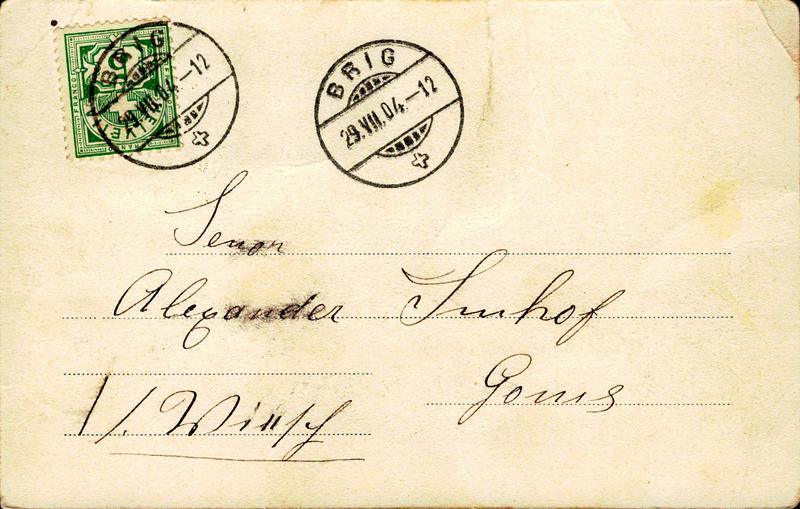 BRIG
29.VII.04.–12
BRIG
29.VII.04.–12
FRANCO
HELVETIA
5
Senor
Alexander Imhof
Goms